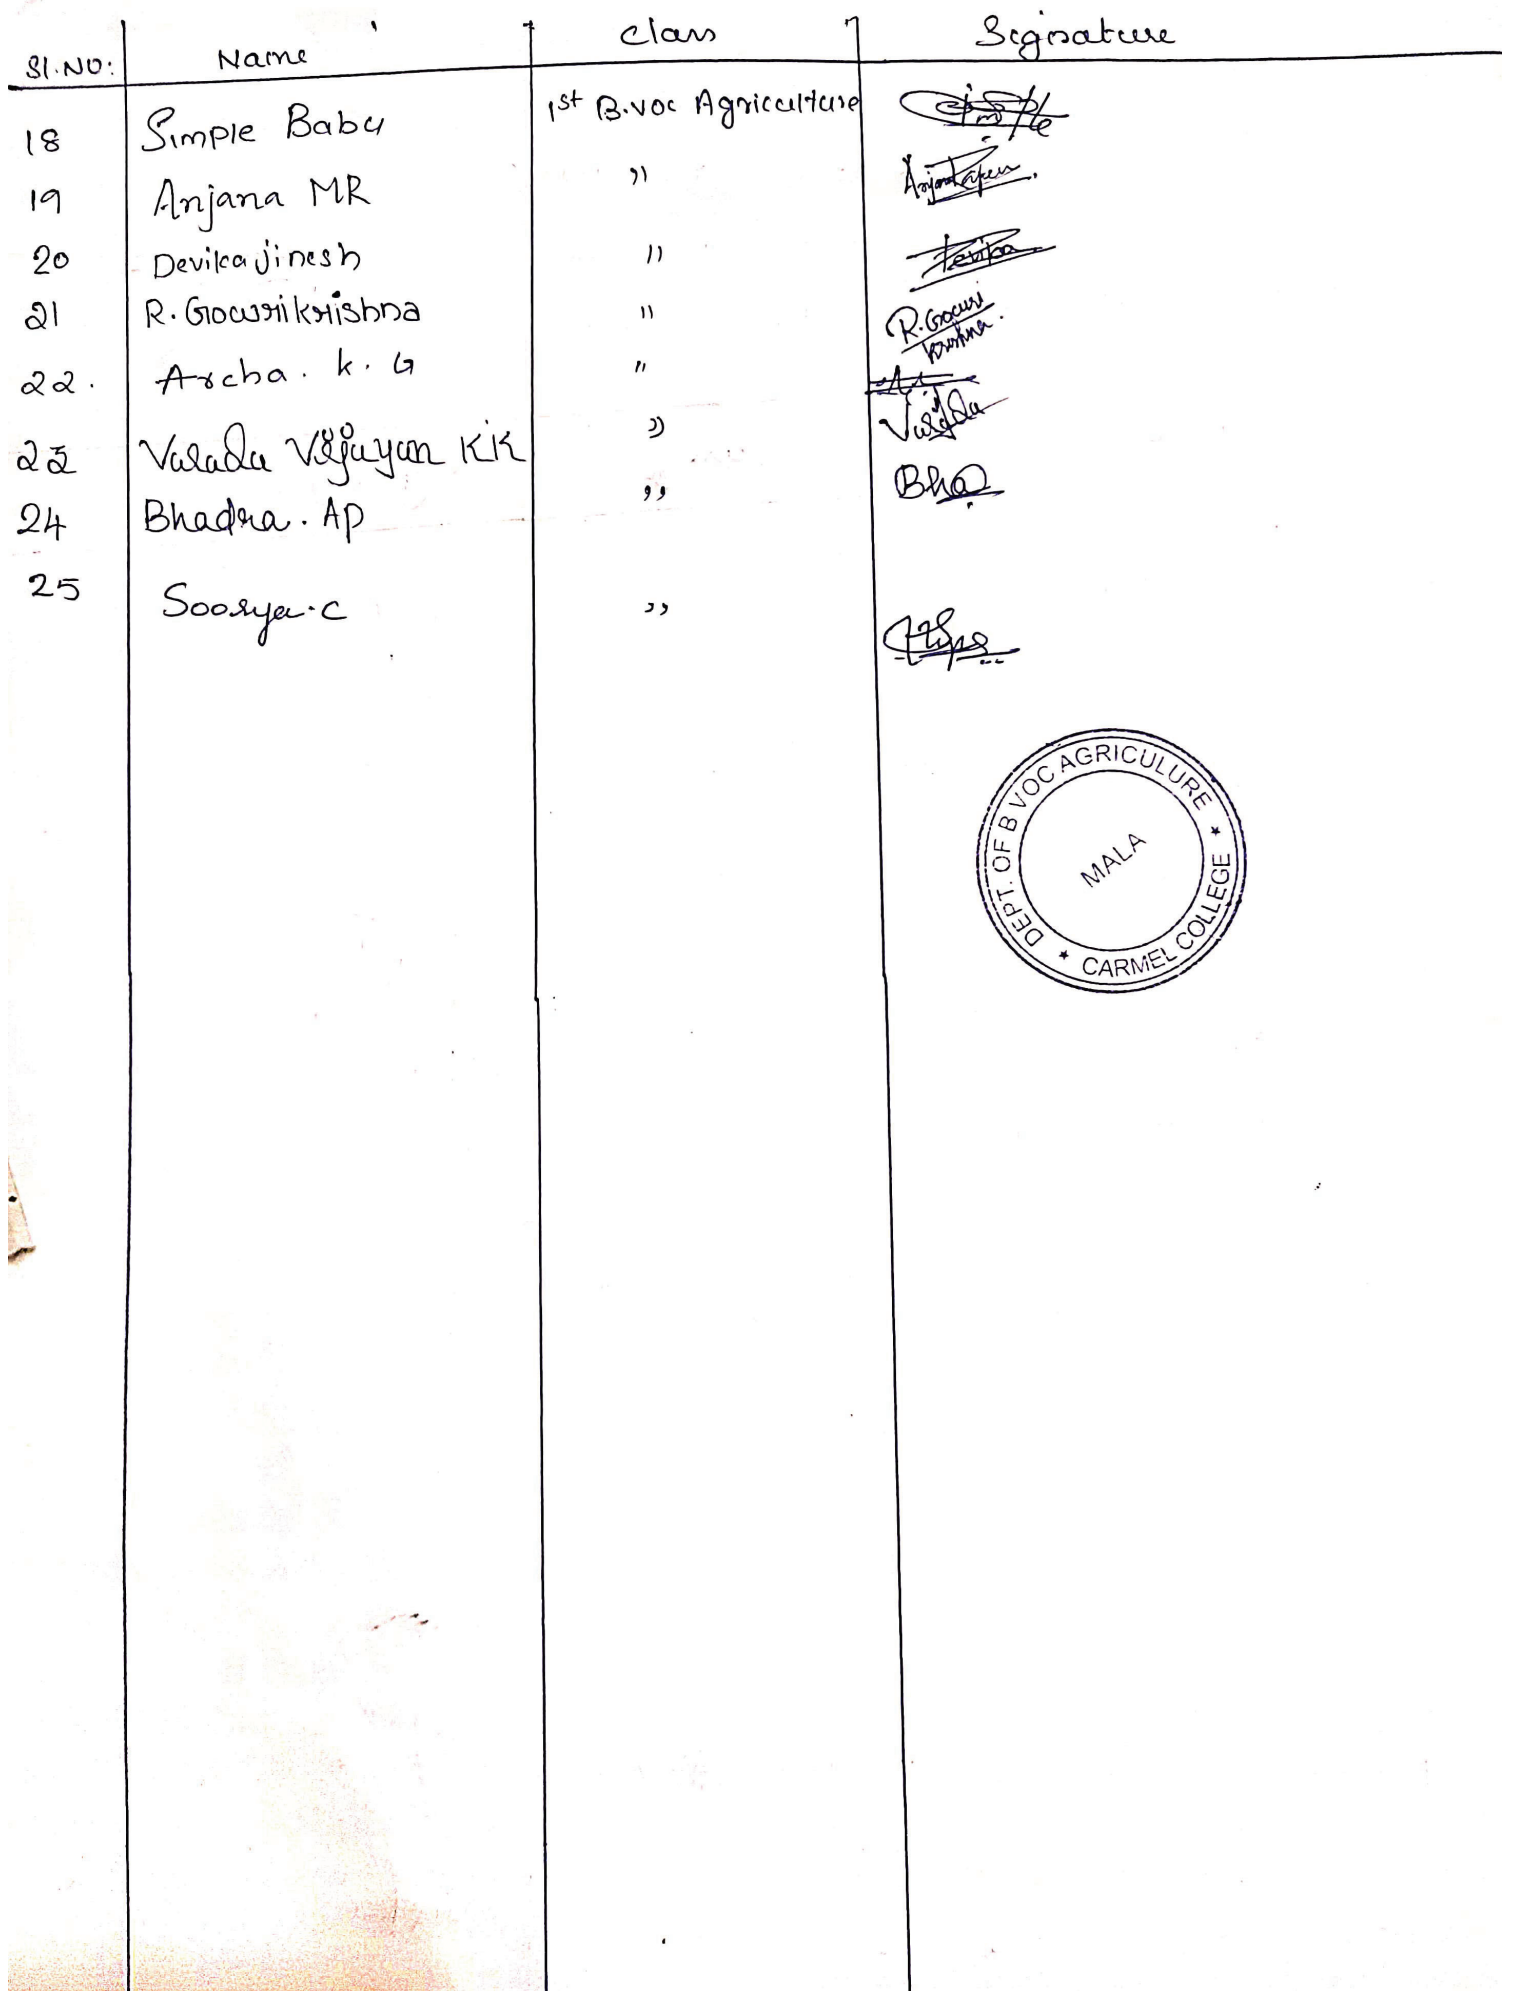 Sl.No: Name Class Signature
18 Simple Babu 1st B.voc Agriculture Simple
19 Anjana MR "
20 Devika Jinesh " Devika
21 R. Gowrikrishna " R. Gowri
krishna.
22. Archa. K. G "
23 Varada Vijayan KK " Varada
24 Bhadra. AP " Bha
25 Soorya. C "
DEPT. OF B VOC AGRICULURE
MALA
★ CARMEL COLLEGE ★